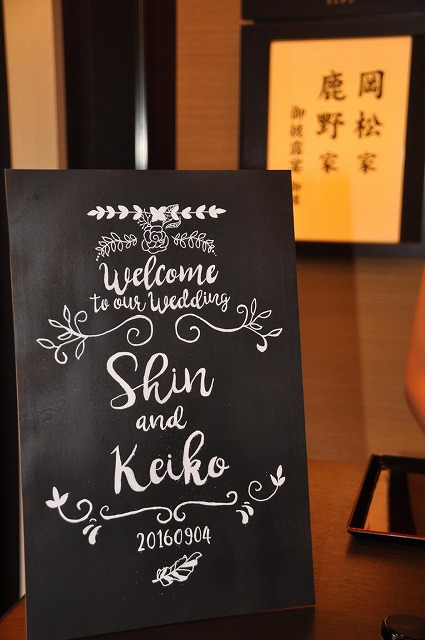 岡松家
鹿野家
御披露宴
Welcome
to our Wedding
Shin
and
Keiko
20160904